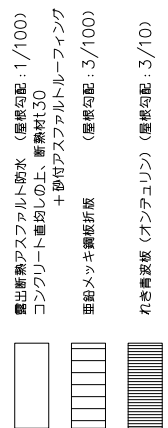 露出断熱アスファルト防水 (屋根勾配：1/100)
コンクリート直均しの上、断熱材t30
＋砂付アスファルトルーフィング
亜鉛メッキ鋼板折版 (屋根勾配：3/100)
れき青波板(オンデュリン) (屋根勾配：3/10)